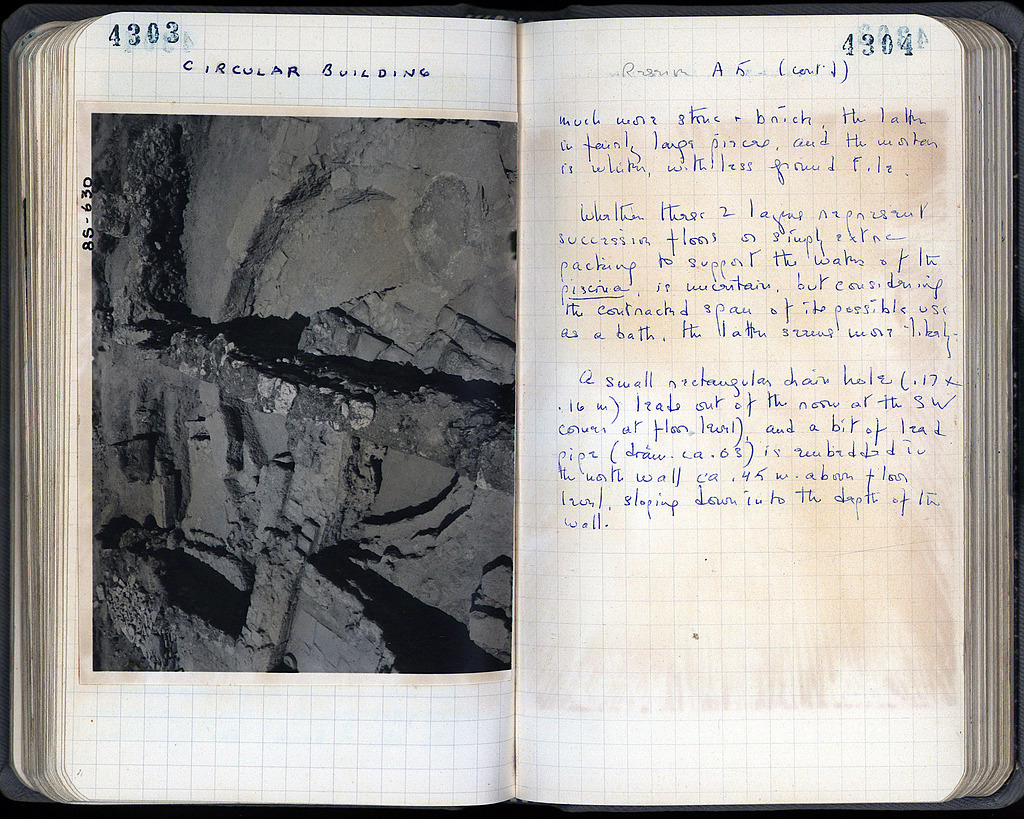 4303
CIRCULAR BUILDING
85-630
4304
A 5 (cont'd)
much more stone + brick, the latter
in fairly large pieces, and the mortar
is whiter, with less ground tile.
Whether these 2 layers represent
succession floors or simply extra
packing to support the water of the
piscina, is uncertain, but considering
the contracted span of its possible use
as a bath, the latter seems more likely.
A small rectangular drain hole (.17 x
.16 m) leads out of the room at the SW
corner at floor level, and a bit of lead
pipe (diam. ca. .03) is embedded in
the north wall ca .45 m. above floor
level, sloping down into the depth of the
wall.